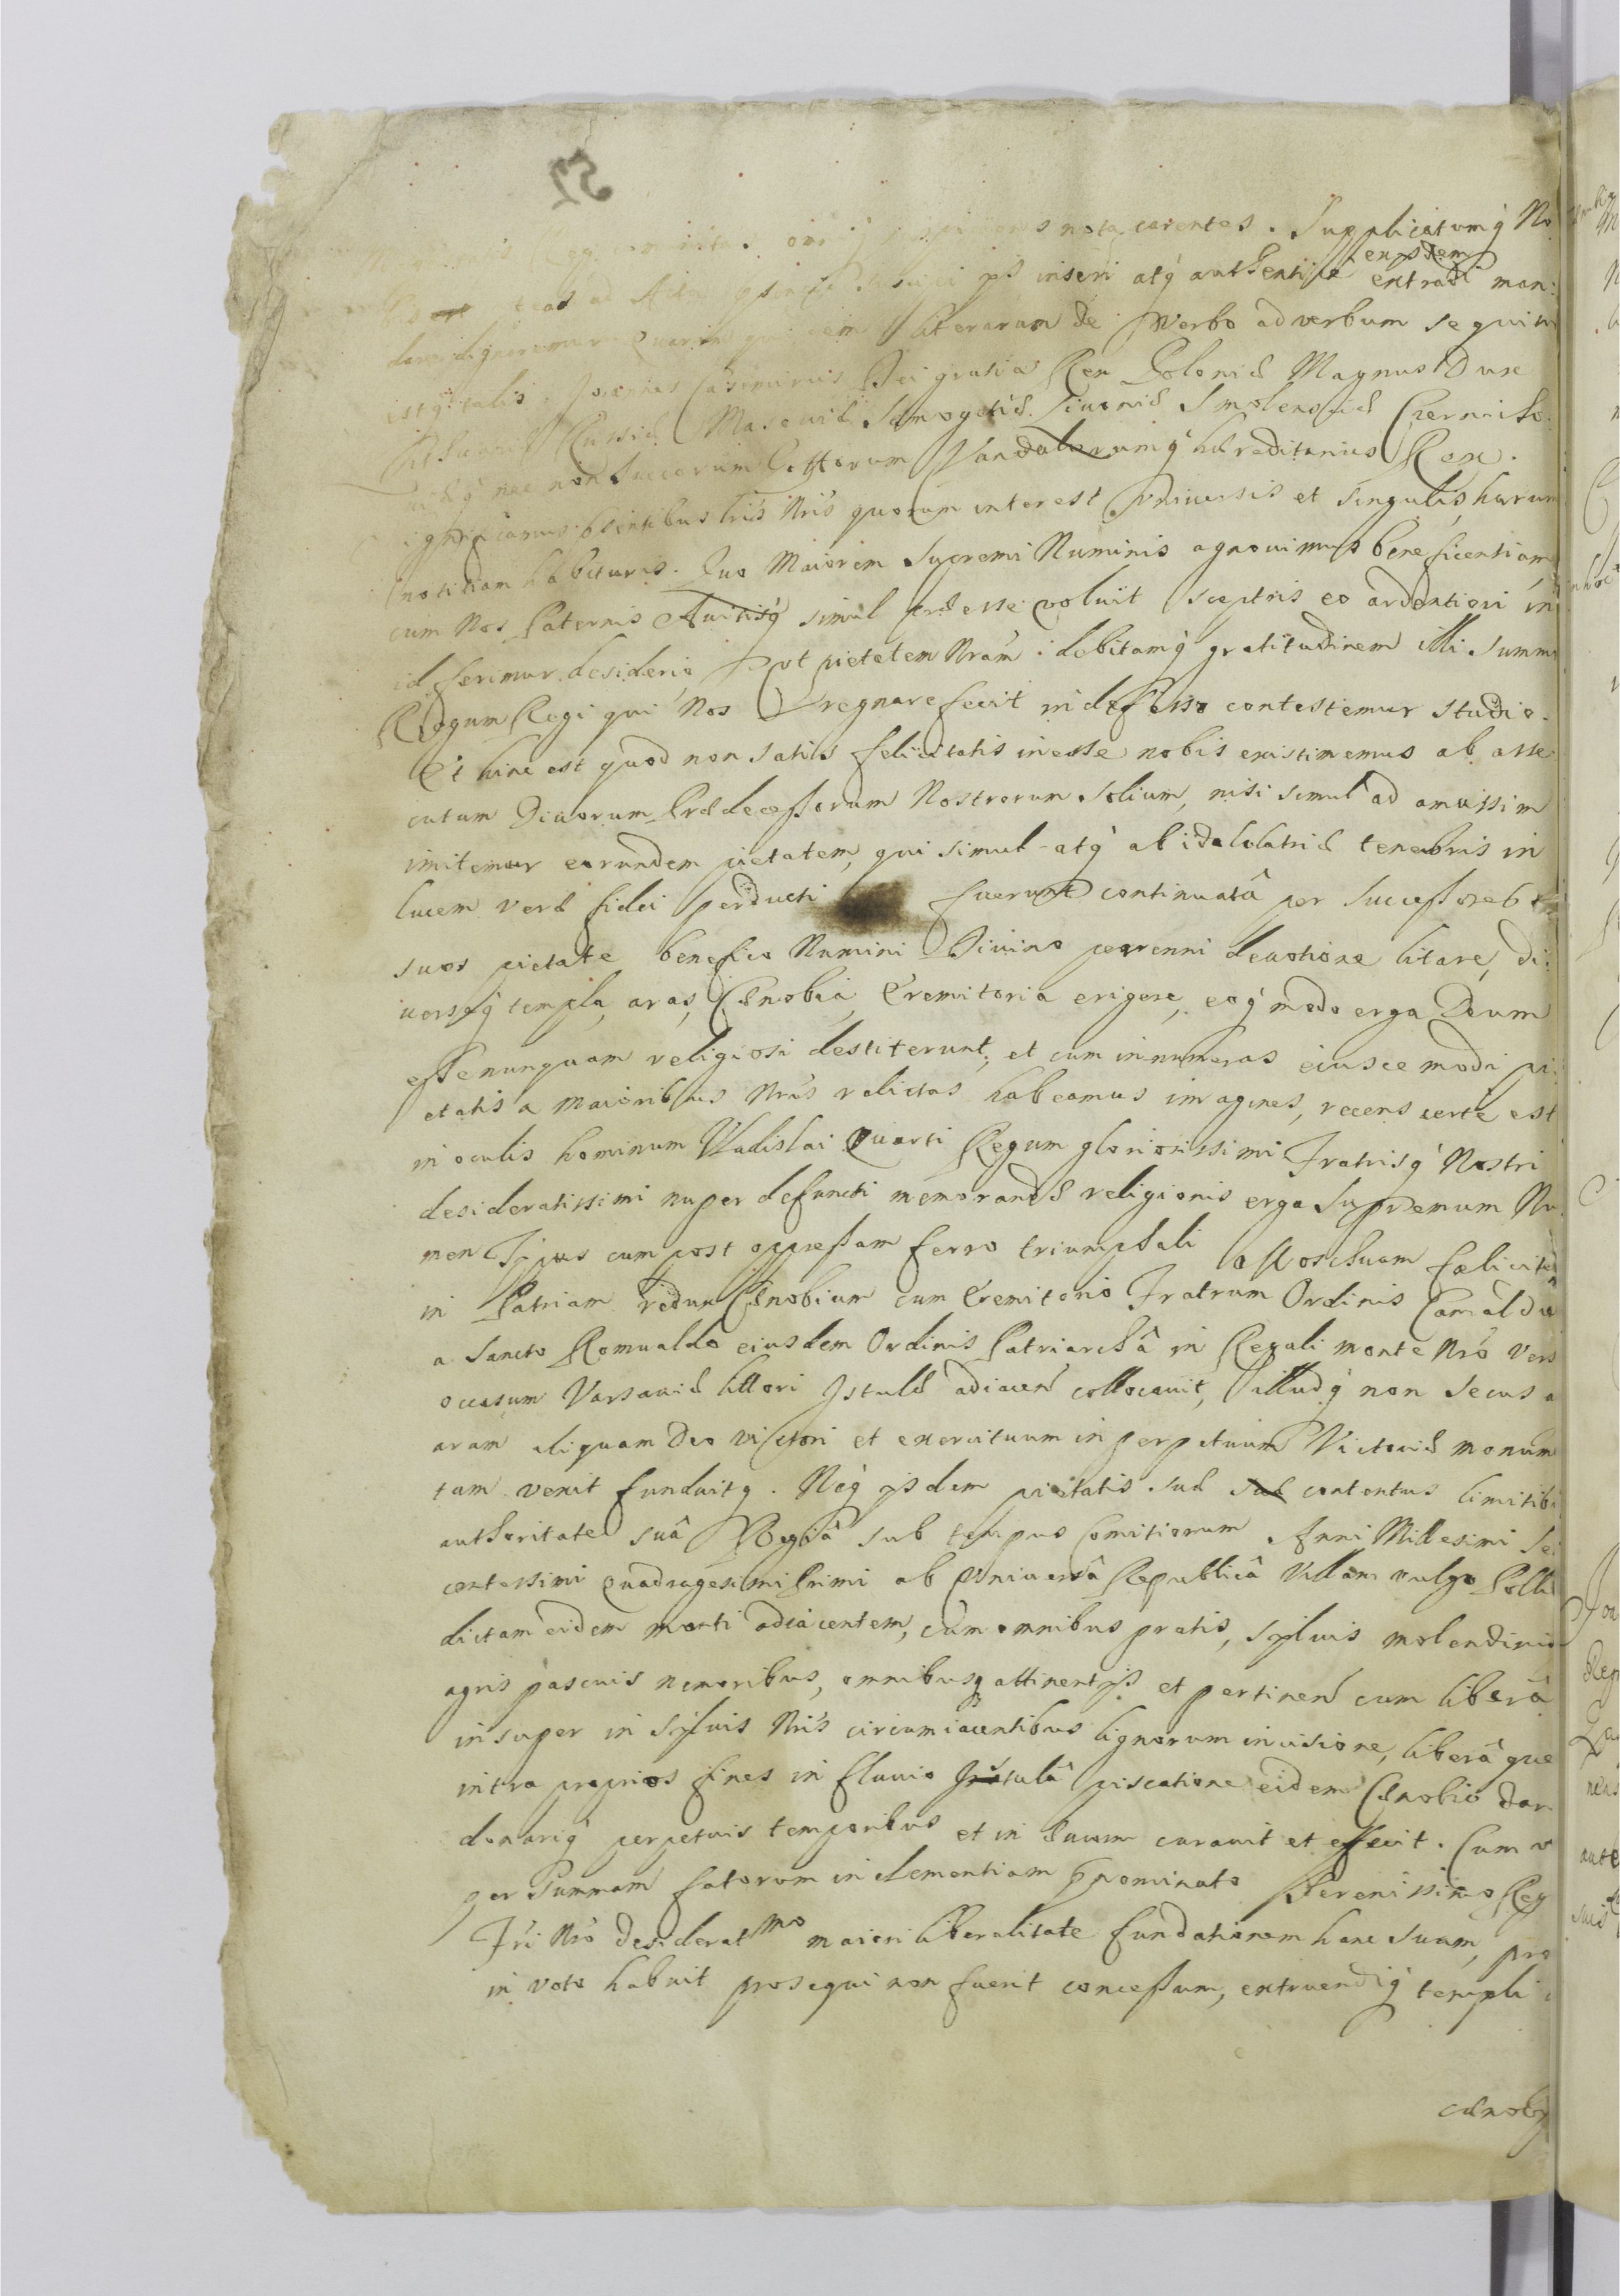 57
notą carentes. Supplicatumq́ No
eas ad Acta inseri atq́ authenticè eãsdem extradi man:
dare dignaremur. Quarum quidem literarum de Verbo ad verbum sequitur
estq́ talis. Joannes Casimirus Dei gratia Rex Poloniæ Magnus Dux
Lithuaniæ Russiæ Masoviæ Samogitiæ Livoniæ Smolensciæ Czernicho
viæq́ nec non Suecorum Gottorum Vandalorumq́ hæreditarius Rex.
Significamus p̃sentibus lris Nr̃is quorum interest vniuersis et singulis harum
notitiam habituris. Quo Maiorem Supremi Numinis agnouimus beneficentiam
cum Nos Paternis Auitisq́ simul præesse voluit sceptris eo ardentiori in
id ferimur desiderio vt pietatem Nram debitamq́ gratitudinem illi summo
Regum Regi qui Nos regnare fecit indefesso contestemur studio.
Et hinc est quod non satis felicitatis inesse nobis existimemus ab asse
cutum Diuorum Prædecessorum Nostrorum solium, nisi simul ad amussim
imitemur eorundem pietatem, qui simul atq́ ab idololatriæ tenebris in
lucem veræ fidei perducti fuerunt continuatâ per Successores
suos pietate benefico Numini Diuino perenni deuotione litare, di:
uersaq́ templa, aras, Cænobia, Eremitoria erigere, eoq́ modo erga Deum
esse nunquam religiosi destiterunt, et cum innumeras eiuscemodi pi:
etatis a Maioribus Nris relictas habeamus imagines, recens certe est
in oculis hominum Vladislai Quarti Regum gloriosissimi Fratrisq́ Nostri
desideratissimi nuper defuncti memorandæ religionis erga Supremum Nu
men Typus cum post oppressam ferro triumphali Moschuam fæliciter
in Patriam redux Cænobium cum Eremitorio Fratrum Ordinis Camaldu
a Sancto Romualdo eiusdem Ordinis Patriarchâ in Regali monte Nrõ vers
occasum Varsauiæ littori Istulæ adiacen̄ collocauit, illudq́ non secus a
aram aliquam Deo victori et exercituum in perpetuum Victoriæ monum
tum vouit fundauitq. Neq́ ijsdem pietatis suæ suæ contentus limitib
authoritate suâ Regiâ sub tempus Comitiorum Anni Millesimi Se
centessimi Quadragesimi Primi ab Vniuersâ Republicâ Villam vulgo Polk
dictam eidem monti adiacentem, cum omnibus pratis, syluis molendinis
agris pascuis nemoribus, omnibusq attinentijs et pertinen̄ cum liberâ
insuper in syluis Nris circumiacentibus lignorum incisione, liberâ que
intra proprios fines in fluuio Istulâ piscatione eidem Cænobio dar
donariq́ perpetuis temporibus et in æuum curauit et effecit. Cum v
per summam fatorum inclementiam p̃nominato Serenissimo Reg
Frĩ Nrõ desideratmo maiori liberalitate fundationem hanc suam, pro
in voto habuit prosequi non fuerit concessum, extruendiq́ templi
cænobij